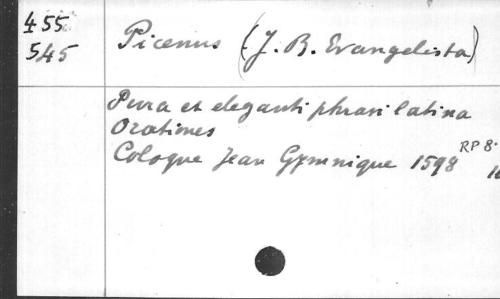 455
545
Picenus (J. B. Evangelista)
Pura et eleganti phrasi latina
Orationes
Cologne Jean Gymnique 1598 RP 8.